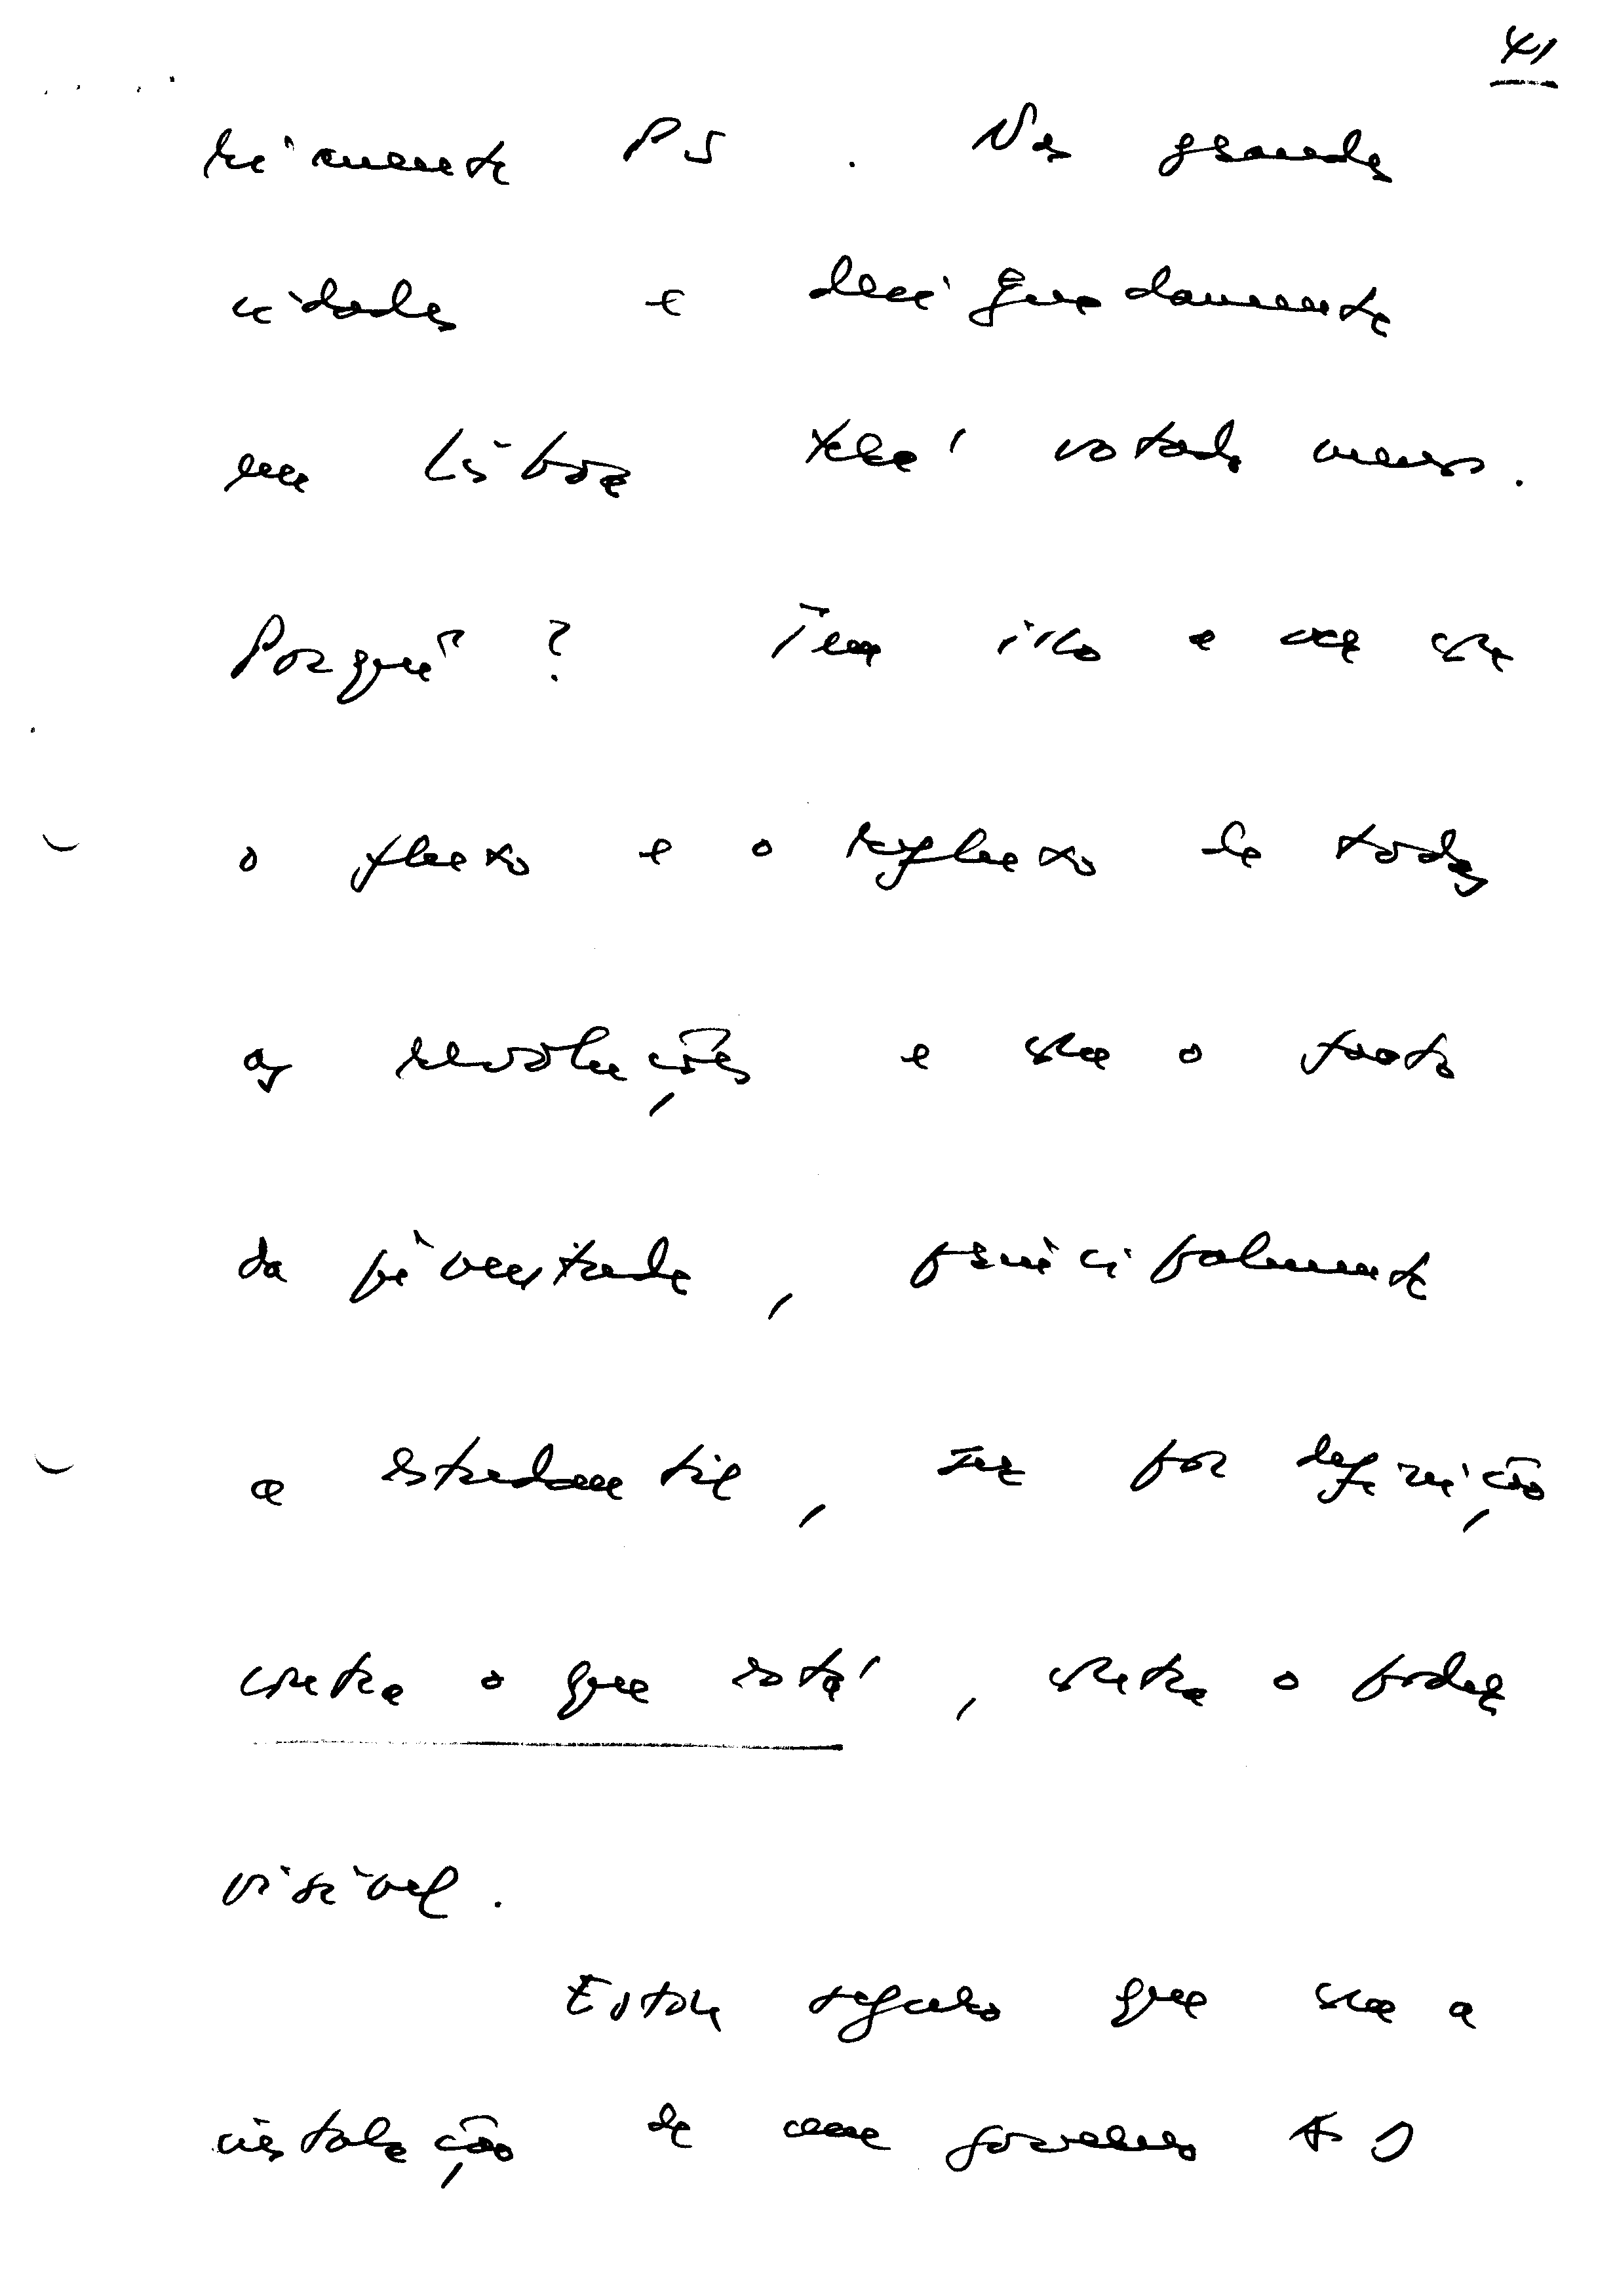 41
riamente PS. Nas grandes
cidades e designadamente
em Lisboa terá votado menos.
Porquê? Tem isto a ver com
o fluxo e o refluxo de todas
as revoluções e com o facto
da juventude, principalmente
a estudantil, ser por definição
contra o que está, contra o poder
visível.
Estou seguro que com a
instalação de um governo AD